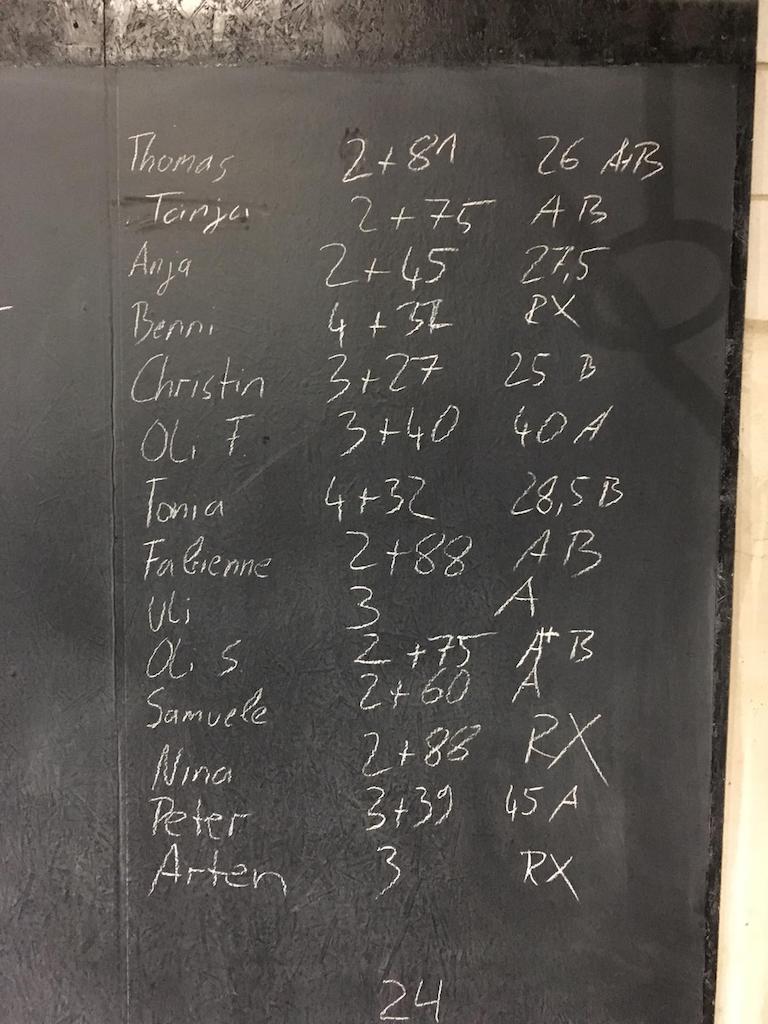 Thomas 2+81 26 A+B
Tanja 2+75 AB
Anja 2+45 27,5
Benni 4+32 RX
Christin 3+27 25 B
Oli F. 3+40 40 A
Tonia 4+32 28,5 B
Fabienne 2+88 AB
Uli 3 A
Oli S. 2+75 A+ B
Samuele 2+60 A
Nina 2+88 RX
Peter 3+39 45 A
Arten 3 RX
24